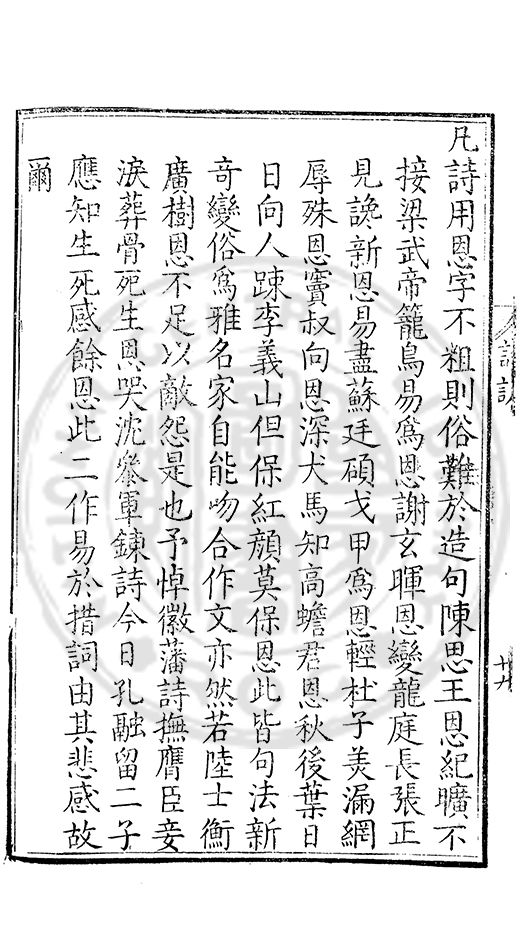 凡詩用恩字不粗則俗難於造句陳思王恩紀曠不
接梁武帝籠鳥易爲恩謝玄暉恩變龍庭長張正
見讒新恩易盡蘇廷碩戈甲爲恩輕杜子美漏網
辱殊恩竇叔向恩深犬馬知高蟾君恩秋後葉日
日向人踈李義山但保紅顏莫保恩此皆句法新
奇變俗爲雅名家自能吻合作文亦然若陸士衡
廣樹恩不足以敵怨是也予悼徽藩詩撫膺臣妾
淚葬骨死生恩哭沈參軍鍊詩今日孔融留二子
應知生死感餘恩此二作易於措詞由其悲感故
爾
廿九